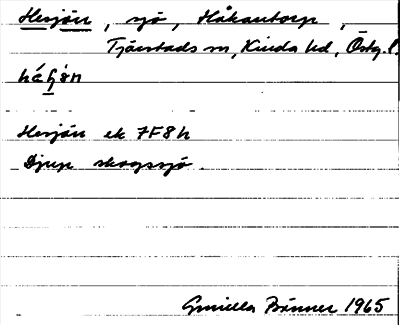 Hesjön, sjö, Håkantorp,
Tjärstads sn, Kinda hd, Östg. l.
Hesjön ek 7F8h
Djup skogssjö.
Gunilla Bänner 1965